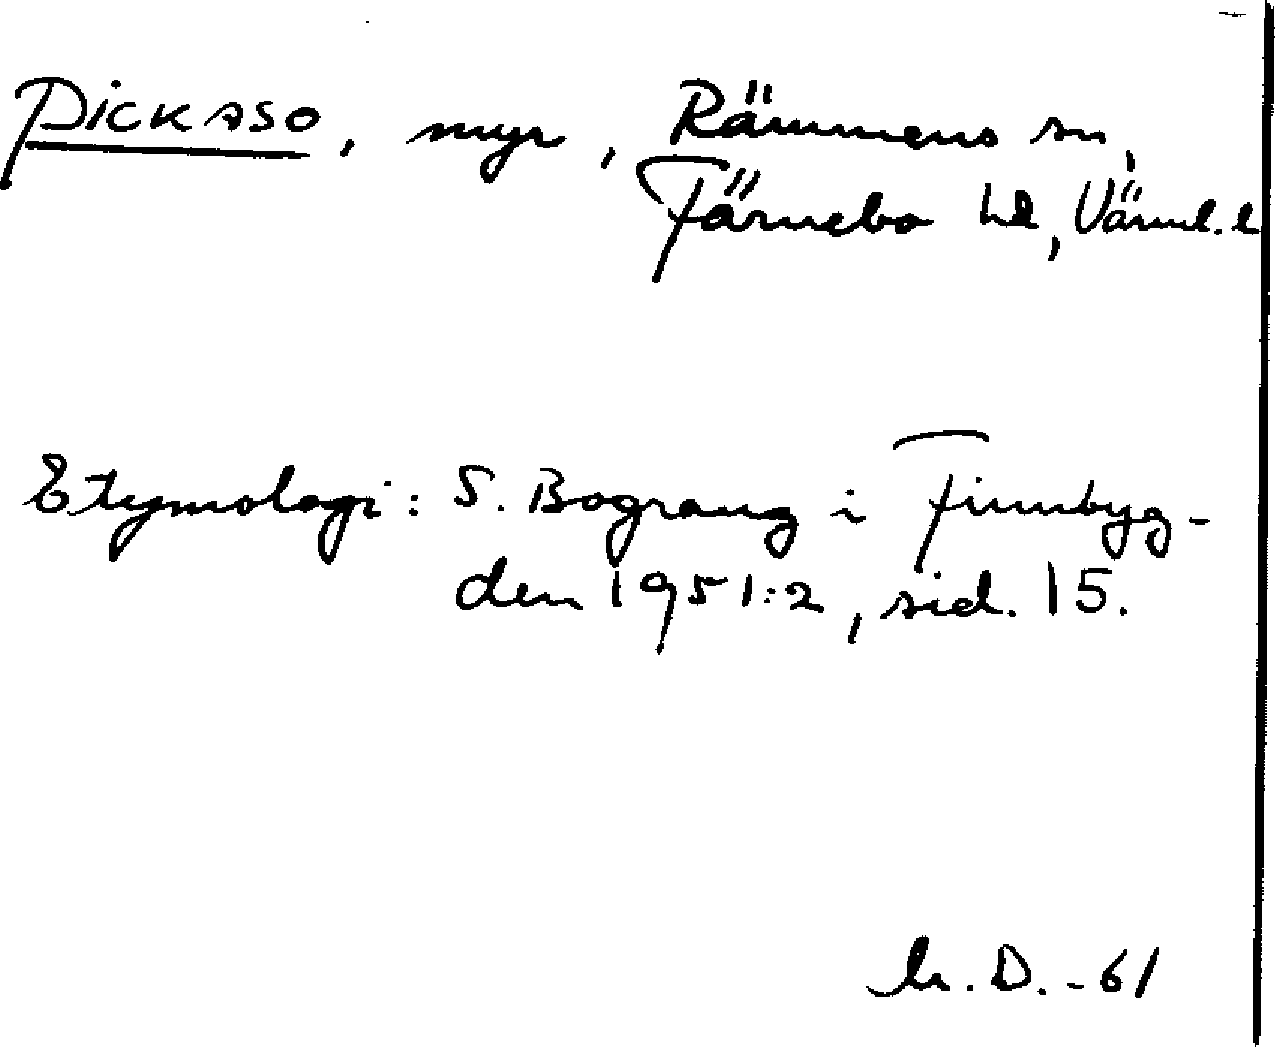 Pickaso, myr, Rämmens sn,
Färnebo hd, Värml. l
Etymologi: S. Bograng i Finnbyg-
den 1951:2, sid. 15.
M. D. -61